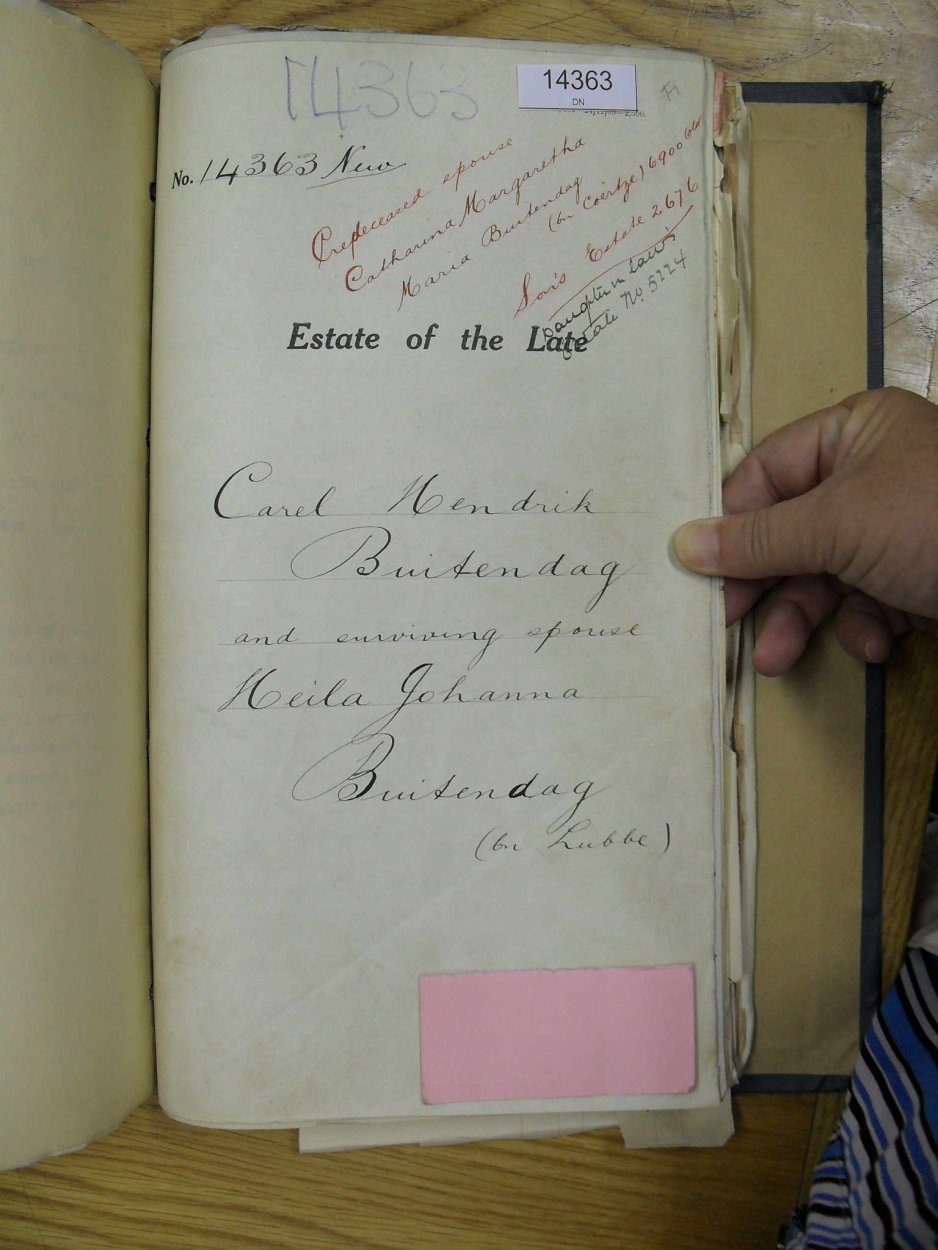 14363
14363
DN
No. 14363 New
Predeceased spouse
Catharina Margaretha
Maria Buitendag
(bn Coertze) 6900
Son's Estate 2676
Daughter in Law's
Estate No 5224
Estate of the Late
Carel Hendrik
Buitendag
and surviving spouse
Heila Johanna
Buitendag
(bn Lubbe)